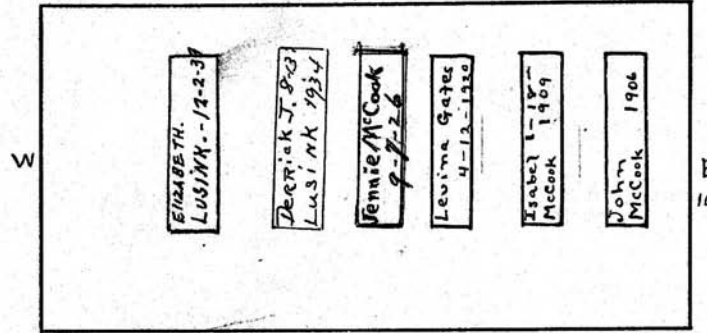 W
ELIZABETH.
LUSINK.-12-2-37
DERRICK J. 8-13
LUSINK 1934
Jennie McCook
9-7-26
Levina Gates
4-12-1920
Isabel 1-18-
McCook 1909
John
McCook 1906
E